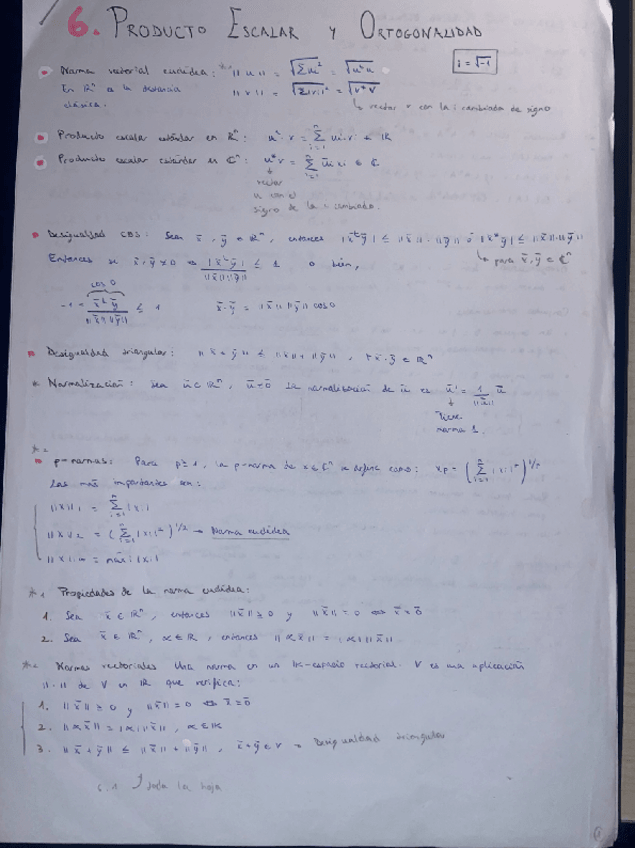 6. PRODUCTO ESCALAR Y ORTOGONALIDAD
i = √-1
Norma vectorial euclídea: *1 ||u|| = √Σui² = √uᵗu
En ℝⁿ a la distancia ||v|| = √Σ|vi|² = √v*v
clásica. ↳ vector v con la i cambiada de signo
Producto escalar estándar en ℝⁿ: uᵗv = Σ ui·vi ∈ ℝ
Producto escalar estándar en ℂⁿ: u*v = Σ ūi vi ∈ ℂ
vector
u con el
signo de la i cambiado.
Desigualdad CBS: Sean x̄, ȳ ∈ ℝⁿ, entonces |x̄ᵗȳ| ≤ ||x̄||·||ȳ|| o |x̄*ȳ| ≤ ||x̄||·||ȳ||
Entonces si x̄, ȳ ≠ 0 ⇒ |x̄ᵗȳ| / ||x̄||·||ȳ|| ≤ 1 o bien, ↳ para x̄, ȳ ∈ ℂⁿ
cos θ
-1 ≤ x̄ᵗȳ / ||x̄||·||ȳ|| ≤ 1 x̄·ȳ = ||x̄|| ||ȳ|| cos θ
Desigualdad triangular: ||x̄+ȳ|| ≤ ||x̄||+||ȳ||, ∀x̄,ȳ ∈ ℝⁿ
Normalización: Sea ū ∈ ℝⁿ, ū≠0̄ la normalización de ū es ū' = 1/||ū|| ū
Tiene
norma 1.
*2
p-normas: Para p≥1, la p-norma de x ∈ ℂⁿ se define como: xp = (Σ |xi|ᵖ)^1/p
Las más importantes son:
||x||1 = Σ |xi|
||x||2 = (Σ |xi|²)^1/2 → Norma euclídea
||x||∞ = máx i |xi|
*1 Propiedades de la norma euclídea:
1. Sea x̄ ∈ ℝⁿ, entonces ||x̄|| ≥ 0 y ||x̄|| = 0 ⇔ x̄ = 0̄
2. Sea x̄ ∈ ℝⁿ, α ∈ ℝ, entonces ||αx̄|| = |α| ||x̄||
*2 Normas vectoriales Una norma en un 𝕂-espacio vectorial V es una aplicación
||·|| de V en ℝ que verifica:
1. ||x̄|| ≥ 0 y ||x̄|| = 0 ⇔ x̄ = 0̄
2. ||αx̄|| = |α| ||x̄||, α ∈ 𝕂
3. ||x̄+ȳ|| ≤ ||x̄|| + ||ȳ||, x̄+ȳ ∈ V → Desigualdad triangular
6.1 toda la hoja
1